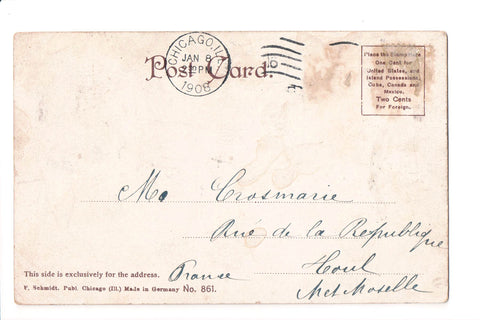 CHICAGO, ILL.
JAN 8
2 30 PM
1908
Post Card.
Place the Stamp Here
One Cent for
United States, and
Island Possessions,
Cuba, Canada and
Mexico.
Two Cents
For Foreign.
Mo Crosmarie
Rue de la République
Toul
France
Met Moselle
This side is exclusively for the address.
F. Schmidt. Publ. Chicago (Ill.) Made in Germany No. 861.